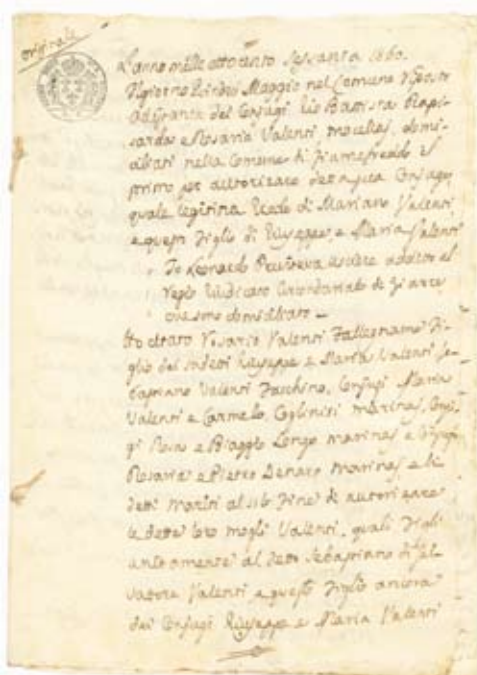 originale
L'anno mille ottocento sessanta 1860.
Il giorno Maggio nel Comune
Ad istanza dei Conjugi Battista Rapi-
sarda e Rosaria Valenti domi-
ciliati nella Comune di Fiumefreddo il
primo per autorizare Conjuge
quale legitima di Mariano Valenti
e questi figlio di Giuseppe, e Maria Valenti
Io Leonardo usciere addetto al
Regio Giudicato Circondariale di Giarre
domiciliato
Ho citato Rosario Valenti Fallegname Fi-
glio dei sudetti Giuseppe e Maria Valenti Se-
bastiano Valenti Conjugi Maria
Valenti e Carmelo marinaj, Conju-
gi Rosa e Biaggio Longo marinaj e Conjugi
Rosaria e Pietro Denaro marinaj, e li
detti mariti al solo fine di autorizare
le dette loro mogli Valenti, quali figli
unitamente al detto Sebastiano di Sal-
vatore Valenti e questo figlio ancora
dei Conjugi Giuseppe e Maria Valenti